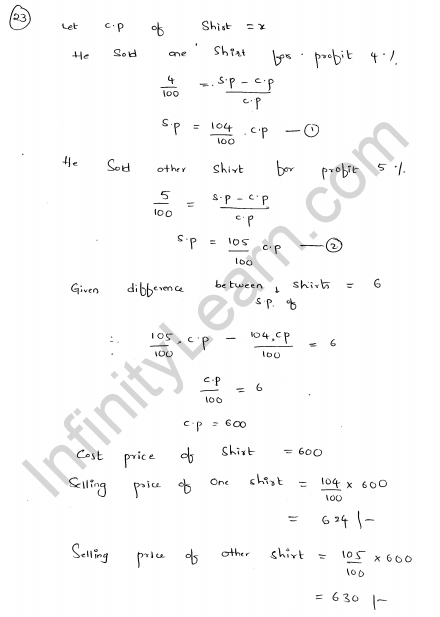 23
Let c.p of Shirt = x
He Sold one Shirt for profit 4.%
4/100 = s.p - c.p/c.p
s.p = 104/100 . c.p — ①
He Sold other Shirt for profit 5.%
5/100 = s.p - c.p/c.p
s.p = 105/100 c.p — ②
Given difference between s.p. of shirts = 6
∴ 105/100 . c.p - 104.cp/100 = 6
c.p/100 = 6
c.p = 600
Cost price of Shirt = 600
Selling price of one shirt = 104/100 x 600
= 624 /-
Selling price of other shirt = 105/100 x 600
= 630 /-
InfinityLearn.com